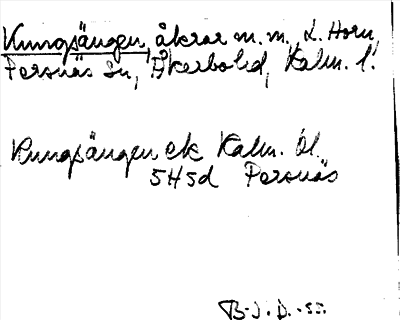 Kungsängen, åkrar m. m., L. Horn,
Persnäs sn, Åkerbo hd, Kalm. l.
Kungsängen ek Kalm. Öl.
5H5d Persnäs
B-J. D. -55.